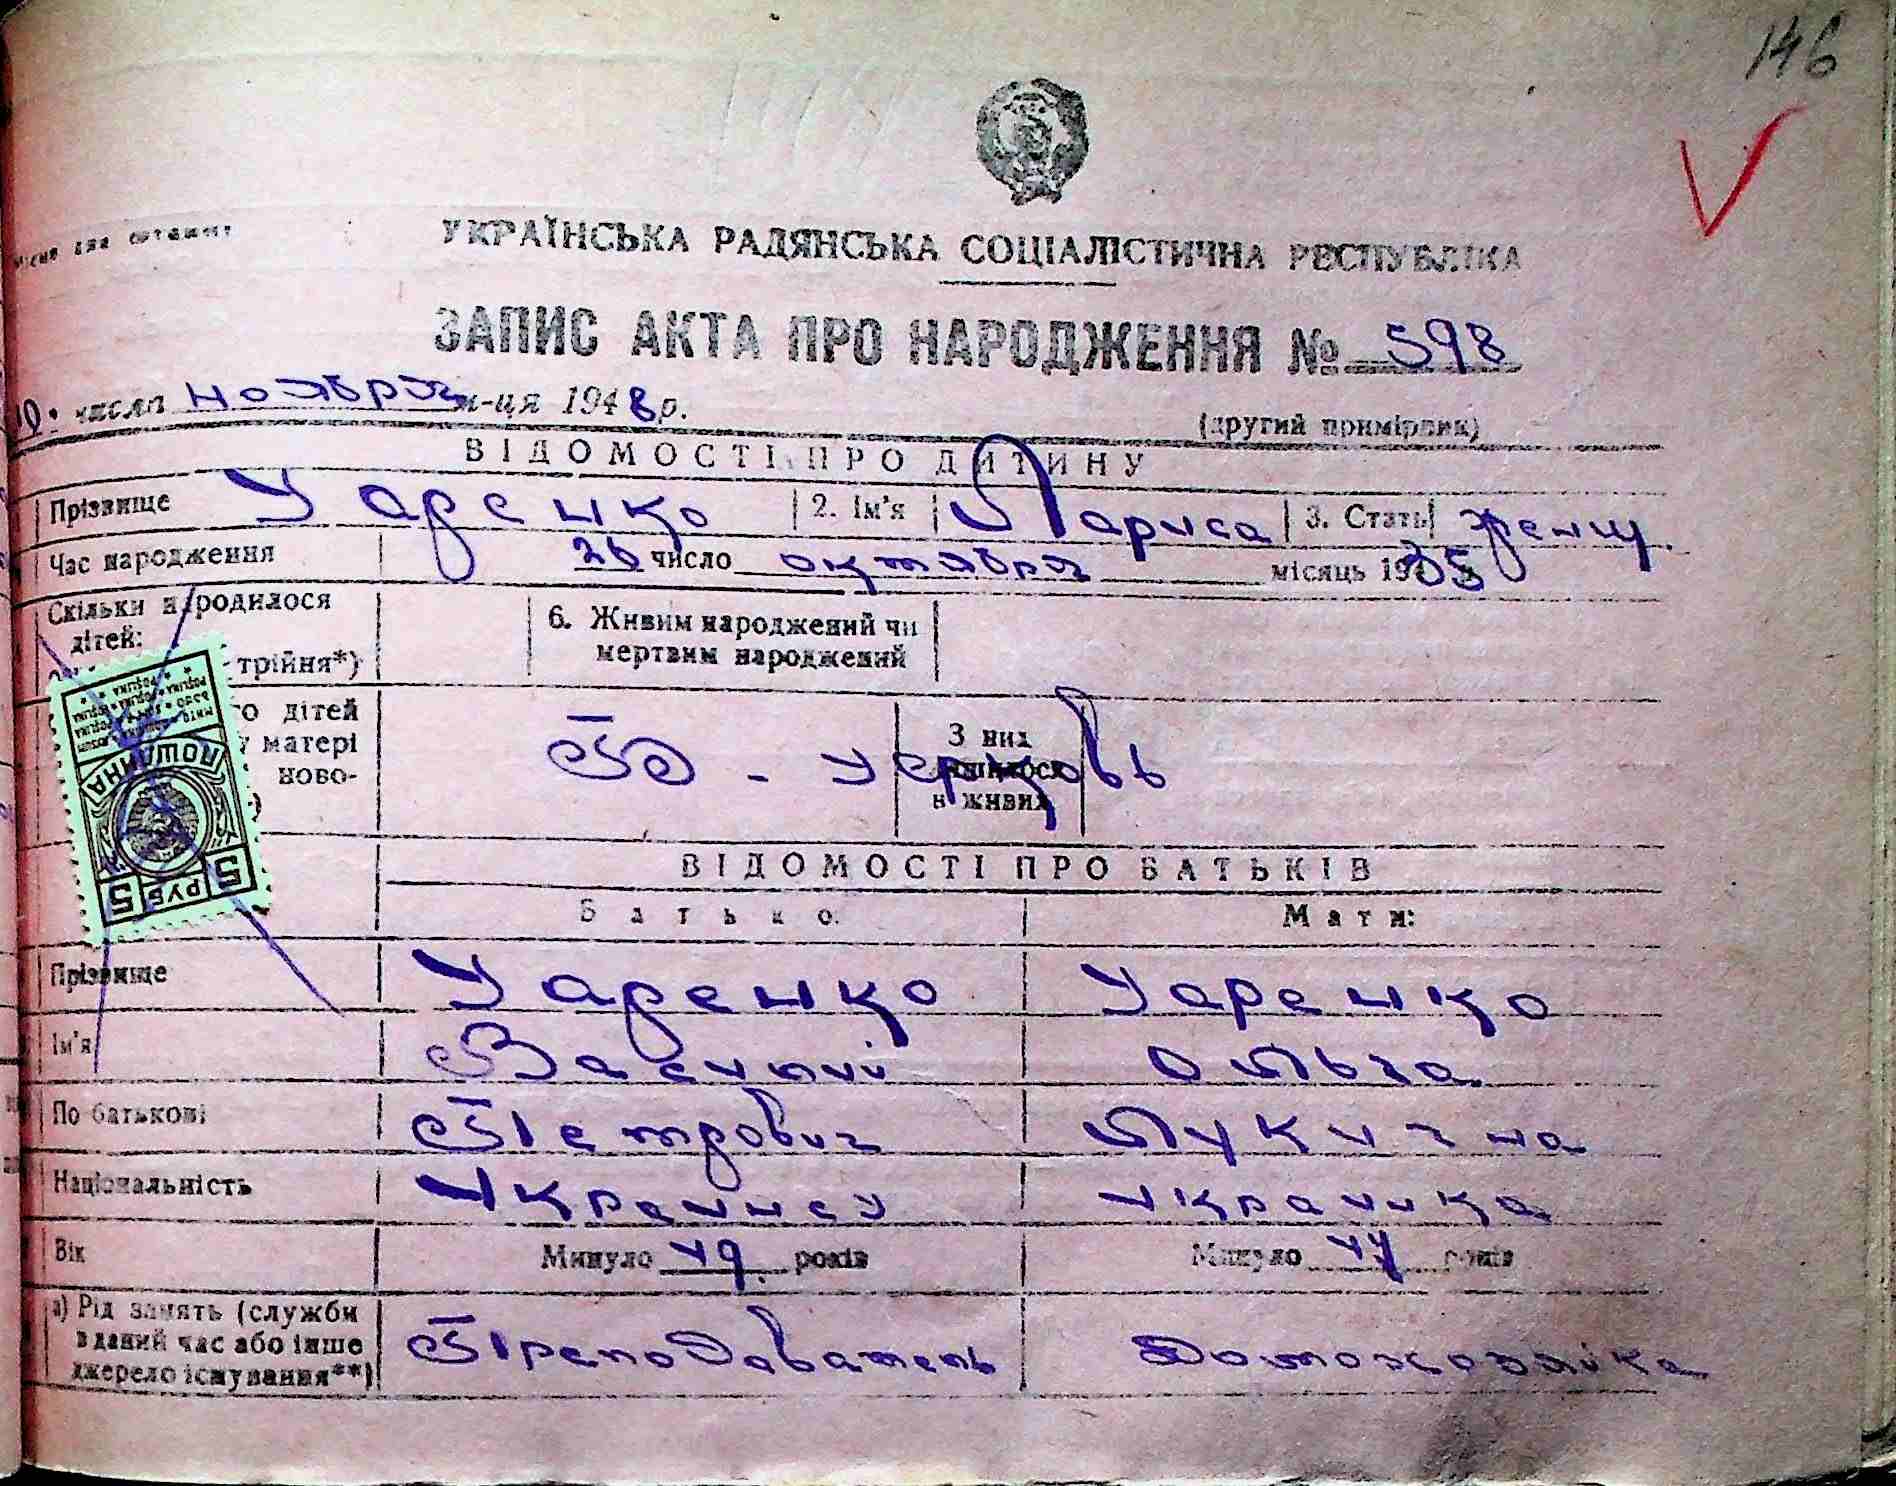 146
УКРАЇНСЬКА РАДЯНСЬКА СОЦІАЛІСТИЧНА РЕСПУБЛІКА
ЗАПИС АКТА ПРО НАРОДЖЕННЯ № 598
10. числа ноября м-ця 1948 р.
(другий примірник)
ВІДОМОСТІ ПРО ДИТИНУ
Прізвище Уаренко 2. Ім'я Лариса 3. Стать женщ.
Час народження 26 число октября місяць 1935
Скільки народилося дітей:
трійня*)
6. Живим народжений чи мертвим народжений
го дітей
матері
ново-
З них
в живих
ПОШЛИНА
5 РУБ 5
ВІДОМОСТІ ПРО БАТЬКІВ
Батько: Мати:
Прізвище Уаренко Уаренко
Ім'я Василий Ольга
По батькові Петрович Лукична
Національність Украинец Украинка
Вік Минуло 49 років Минуло 44 років
а) Рід занять (служби
в даний час або інше
джерело існування**)
Преподаватель Домохозяйка